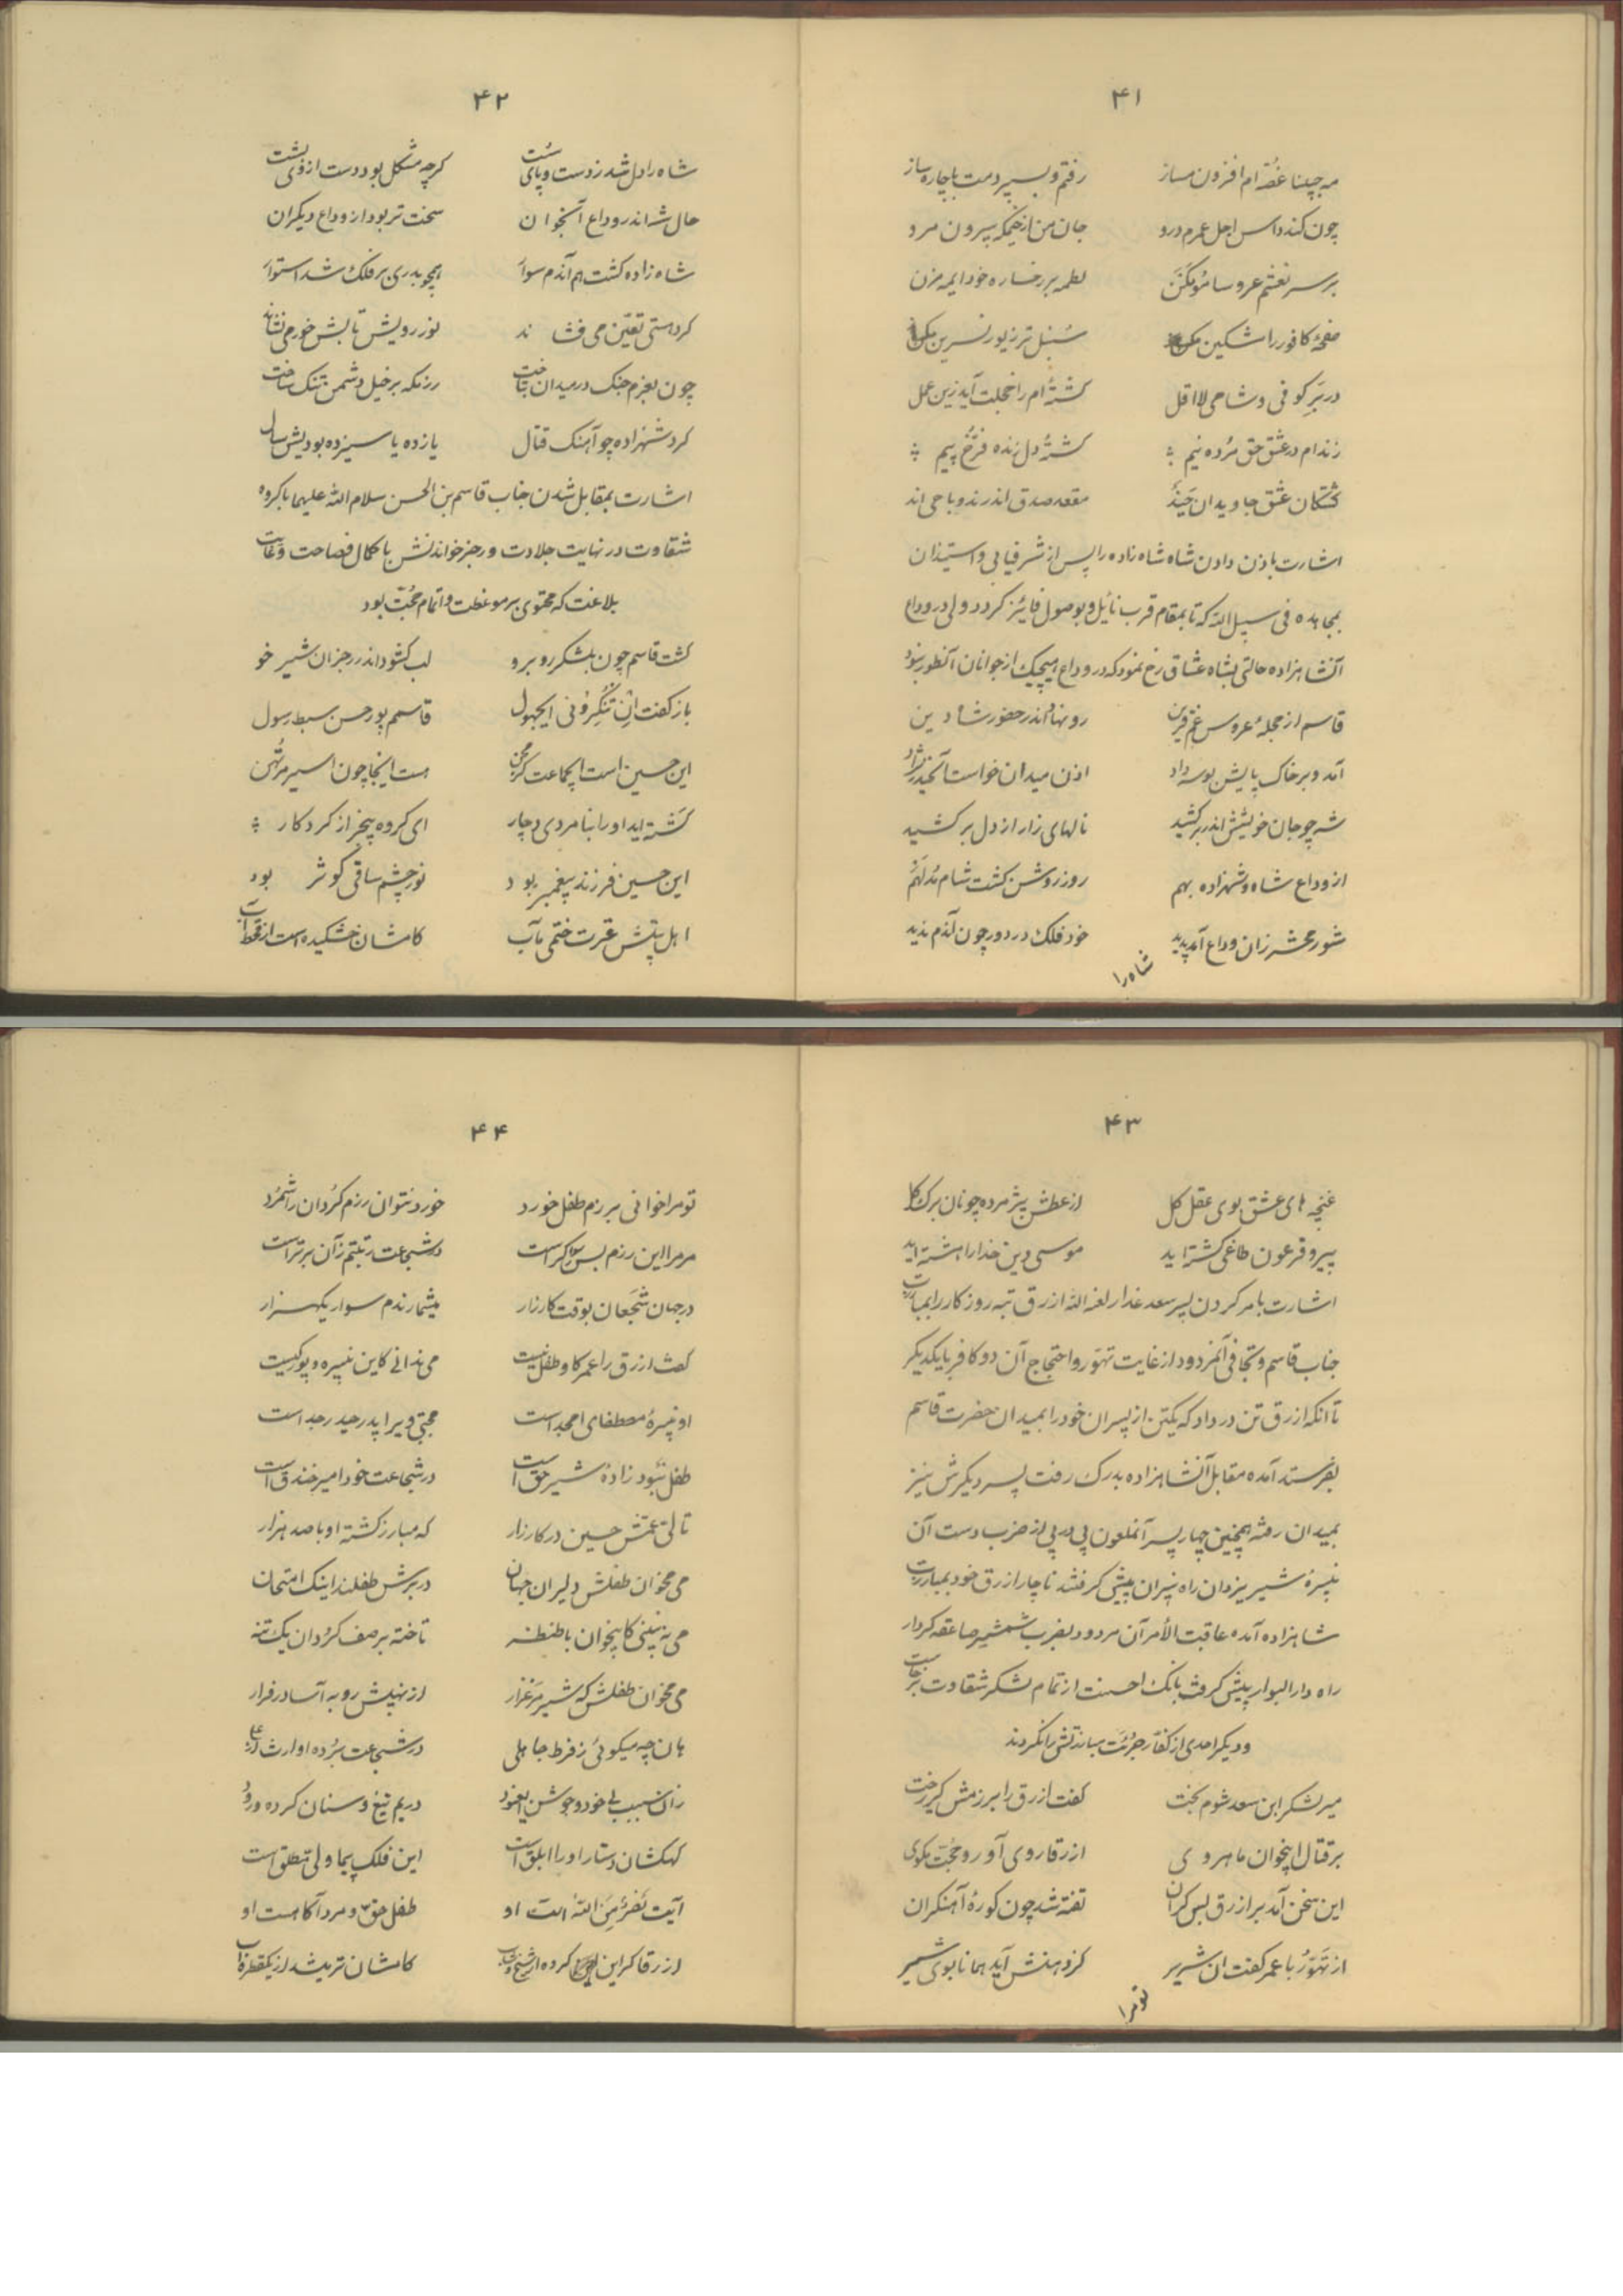 ۴۱
مه جبینا غصّه ام افزون مساز رفتم و بسپردمت با چاره ساز
چون کند داس اجل عمرم درو جان من از خیمگه بیرون مرو
بر سر نعشم عروسا مو مکن لطمه بر رخساره خود ایمه مزن
صفحهٔ کافور را مشکین مکن سنبل تر زیور نسرین مکن
در بر کوفی و شامی لااقل کشته ام را خجلت آید زین عمل
زنده ام در عشق حق مرده نیم کشتهٔ دل زنده فرّخ پیم
کشتگان عشق جاویدان حیند مقعد صدق اندرند و با حی اند
اشارت باذن دادن شاه شاه زاده را پس از شرفیابی و استیذان
بمجاهده فی سبیل الله که تا بمقام قرب نائل و بوصول فائز گردد ولی در وداع
آنشاهزاده حالتی بشاه عشاق رخ نمود که در وداع هیچیک از جوانان آنطور نبود
قاسم از حجلهٔ عروس غم قرین رو نهاد اندر حضور شاه دین
آمد و بر خاک پایش بوسه داد اذن میدان خواست
شه چو جان خویش اندر بر کشید نالهای زار از دل بر کشید
از وداع شاه و شهزاده بهم روز روشن گشت شام مدلهم
شور محشر زان وداع آمد پدید خود فلک در دور چون آندم ندید
شاه را
۴۲
شاه را دل شد ز دست و پای سست گرچه مشکل بود دست از وی بشست
حال شه اندر وداع آنجوان سخت تر بود از وداع دیگران
شاه زاده گشت هم آندم سوار همچو بدری بر فلک شد استوار
گرد هستی تعیّن می فشاند نور رویش تابش خور می نشاند
چون بعزم جنگ در میدان بتاخت رزمگه بر خیل دشمن تنگ ساخت
کرد شهزاده چو آهنک قتال یازده یا سیزده بودیش سال
اشارت بمقابل شدن جناب قاسم بن الحسن سلام الله علیهما با گروه
شقاوت در نهایت جلادت و رجز خواندنش با کمال فصاحت و غایت
بلاغت که محتوی بر موعظت و اتمام حجّت بود
گشت قاسم چون بلشکر روبرو لب گشود اندر رجز آن شیر خو
باز گفت ان تنکرونی ایجهول قاسمم پور حسن سبط رسول
این حسین است ایجماعت کز محن هست اینجا چون اسیر مرتهن
کشته اید او را بنامردی دچار ای گروه بیخبر از کردگار
این حسین فرزند پیغمبر بود نور چشم ساقی کوثر بود
اهل بیتش عترت ختمی مآب کامشان خشکیده است از قحط آب
۴۳
غنچه های عشق بوی عقل کل از عطش پژمرده چونان برک گل
پیرو فرعون طاغی گشته اید موسی دین خدا را هشته اید
اشارت بامر کردن پسر سعد غدار لعنه الله ازرق تبه روزگار را بمبارزت
جناب قاسم و تجافی آنمردود از غایت تهوّر و احتجاج آن دو کافر با یکدیگر
تا آنکه ازرق تن در داد که یکتن از پسران خود را بمیدان حضرت قاسم
بفرستد آمده مقابل آنشاهزاده بدرک رفت پسر دیگرش نیز
بمیدان رفته همچنین چهار پسر آنملعون پی در پی از ضرب دست آن
نبیرهٔ شیر یزدان راه نیران پیش گرفتند ناچار ازرق خود بمبارزت
شاهزاده آمده عاقبت الأمر آن مردود بضرب شمشیر صاعقه کردار
راه دار البوار پیش گرفت بانک احسنت از تمام لشکر شقاوت برخاست
و دیگر احدی از کفّار جرئت مبارزتش را نکردند
میر لشکر ابن سعد شوم بخت گفت ازرق را برزمش گیر رخت
بر قتال اینجوان ماهروی ازرقا روی آور و حجّت مگوی
این سخن آمد بر ازرق بس گران تفته شد چون کورهٔ آهنگران
از تهوّر با عمر گفت ان شریر کز دهنش آید همانا بوی شیر
تو مرا
۴۴
تو مرا خوانی برزم طفل خورد خورد نتوان رزم گردان را شمرد
مر مرا این رزم بس منکر است در شجاعت رتبتم زآن برتر است
در جهان شجعان بوقت کارزار میشمارندم سوار یکهزار
گفت ازرق را عمر کاو طفل نیست می ندانی کاین نبیره و پور کیست
او نبیرهٔ مصطفای امجد است مجتبی ویرا پدر حیدر جد است
طفل نبود زادهٔ شیر حق است در شجاعت خود امیر خندق است
تالی عمّش حسین در کارزار که مبارز گشته او با صد هزار
می مخوان طفلش دلیران جهان در برش طفلند اینک امتحان
می نه بینی کاینجوان با طنطنه تاخته بر صف گردان یک تنه
می مخوان طفلش که شیر مرغزار از نهیبش روبه آسا در فرار
هان چه میگوئی ز فرط جاهلی در شجاعت برده او ارث از علی
زان سبب بی خود و جوشن در یم تیغ و سنان کرده ورود
کهکشان دستار او را ابلق است این فلک پیما ولی مطلق است
آیت نصر من الله است او طفل حق و مرد آگاهست او
ازرقا گر این کرده از شیخ و شاب کامشان تر میشد از یکقطره آب